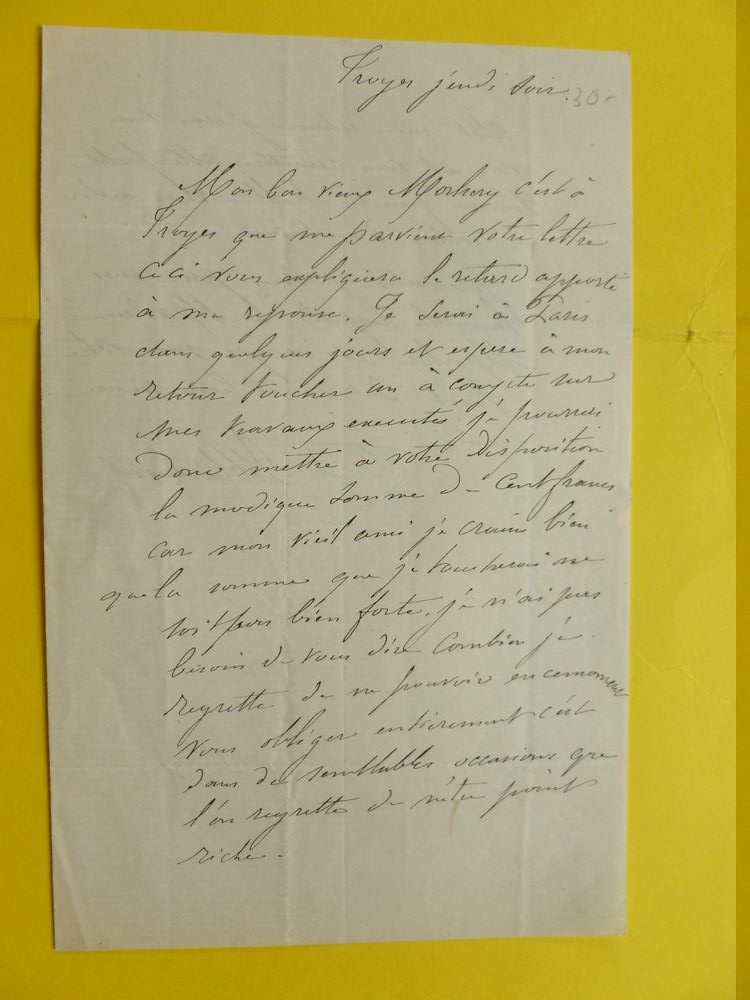 Troyes jeudi soir.
30-
Mon bon vieux c'est à
Troyes que me parvient votre lettre
ceci vous expliquera le retard apporté
à ma reponse. Je serai à Paris
dans quelques jours et espere à mon
retour toucher un à compte sur
mes travaux executés je pourrai
donc mettre à votre disposition
la modique somme de cent francs
car mon vieil ami je crains bien
que la somme que je toucherai ne
soit pas bien forte. je n'ai pas
besoin de vous dire combien je
regrette de ne pouvoir en ce moment
vous obliger entièrement c'est
dans de semblables occasions que
l'on regrette de n'être point
riche.